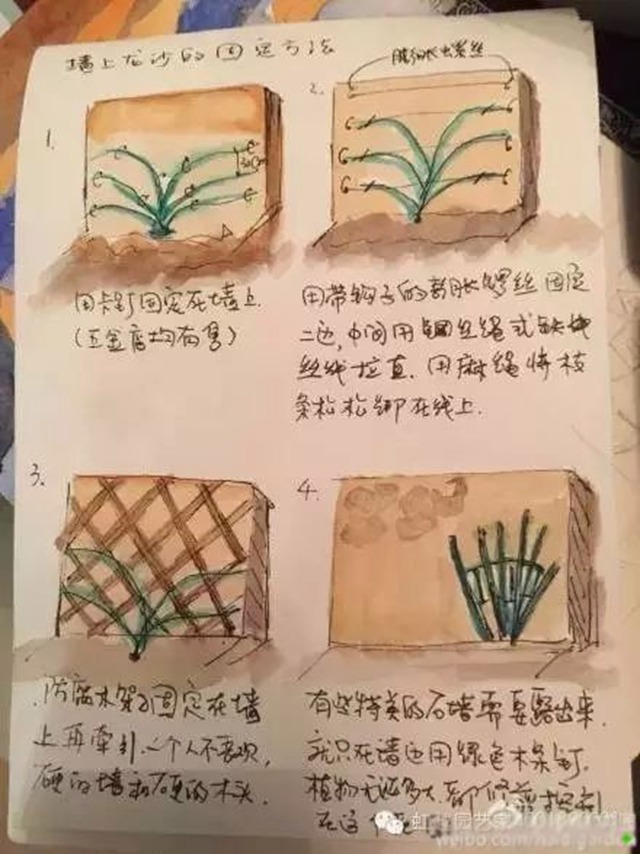 墙上龙沙的固定方法
1.
30cm
用卡钉固定死墙上.
(五金店均有售)
2.
膨胀螺丝
用带钩子的膨胀螺丝固定
二边,中间用钢丝绳或铁
丝线拉直.用麻绳将枝
条松松绑在线上.
3.
防腐木架子固定在墙
上再牵引.个人不喜欢,
硬的墙和硬的木头.
4.
有些特美的石墙需要露出来.
就只在墙边用绿色木条钉.
植物无论多大,都修剪控制
在这个
虹
园艺家
weibo.com/